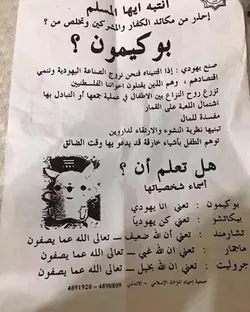 انتبه ايها المسلم
إحذر من مكائد الكفار والمشركين وتخلص من ؟
بوكيمون ؟
صنع يهودي : إذا اقتنيناه فنحن نروج الصناعة اليهودية وننمي
اقتصادهم ، وهم الذين يقتلون اخواننا الفلسطينين
تزرع روح النزاع بين الاطفال في عملية جمعها أو التبادل بها
اشتمال اللعبة على القمار
مفسدة للمال
تبنيها نظرية النشوء والإرتقاء لداروين
توهم الطفل بأشياء خارقة قد يدعو بها وقت الضائق
هل تعلم أن ؟
أسماء شخصياتها
بوكيمون : تعني انا يهودي
بيكاتشو : تعني كن يهوديا
تشارمند : تعني أن الله ضعيف – تعالى الله عما يصفون
ماجمار : تعني ان الله غبي – تعالى الله عما يصفون
جروليت : تعني ان الله بخيل – تعالى الله عما يصفون
جمعية إحياء التراث الإسلامي - الأندلس 4890899 - 4891920